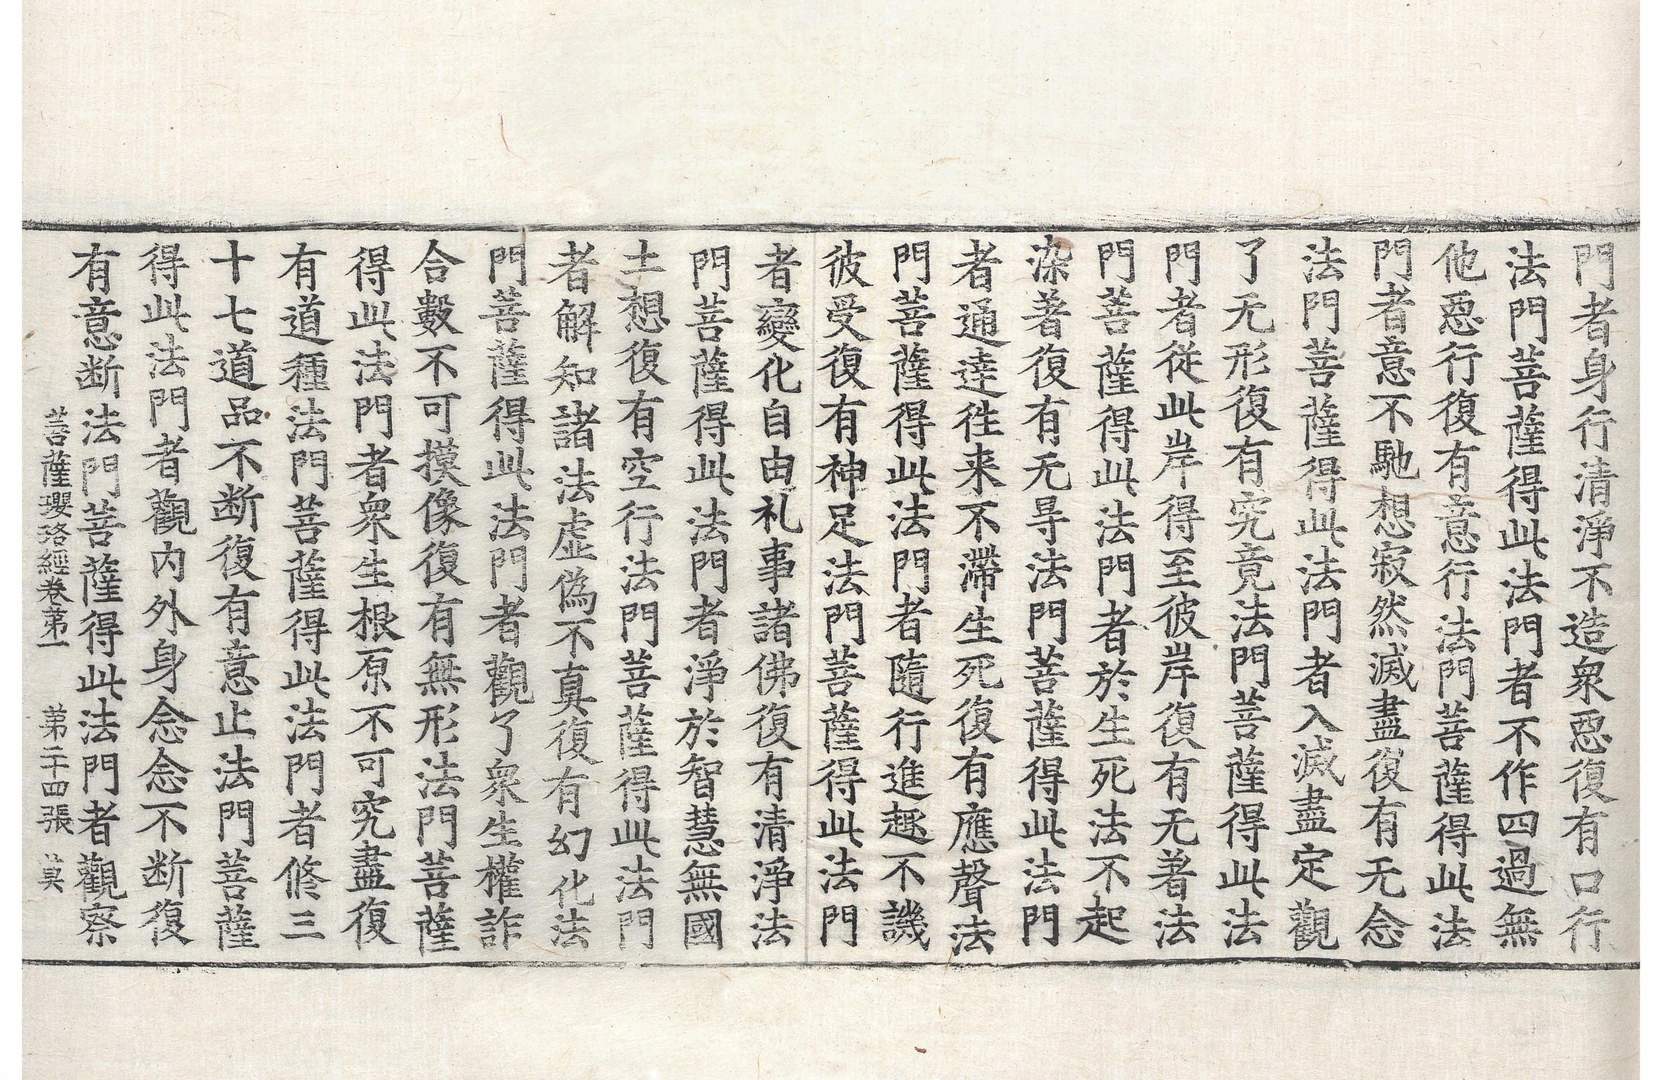 門者身行清淨不造衆惡復有口行
法門菩薩得此法門者不作四過無
他惡行復有意行法門菩薩得此法
門者意不馳想寂然滅盡復有无念
法門菩薩得此法門者入滅盡定觀
了无形復有究竟法門菩薩得此法
門者從此岸得至彼岸復有无著法
門菩薩得此法門者於生死法不起
染著復有无㝵法門菩薩得此法門
者通達徃来不滯生死復有應聲法
門菩薩得此法門者隨行進趣不譏
彼受復有神足法門菩薩得此法門
者變化自由礼事諸佛復有清淨法
門菩薩得此法門者淨於智慧無國
土想復有空行法門菩薩得此法門
者解知諸法虛偽不真復有幻化法
門菩薩得此法門者觀了衆生權詐
合數不可摸像復有無形法門菩薩
得此法門者衆生根原不可究盡復
有道種法門菩薩得此法門者修三
十七道品不断復有意止法門菩薩
得此法門者觀內外身念念不断復
有意断法門菩薩得此法門者觀察
菩薩瓔珞經卷第一 第二十四張 莫